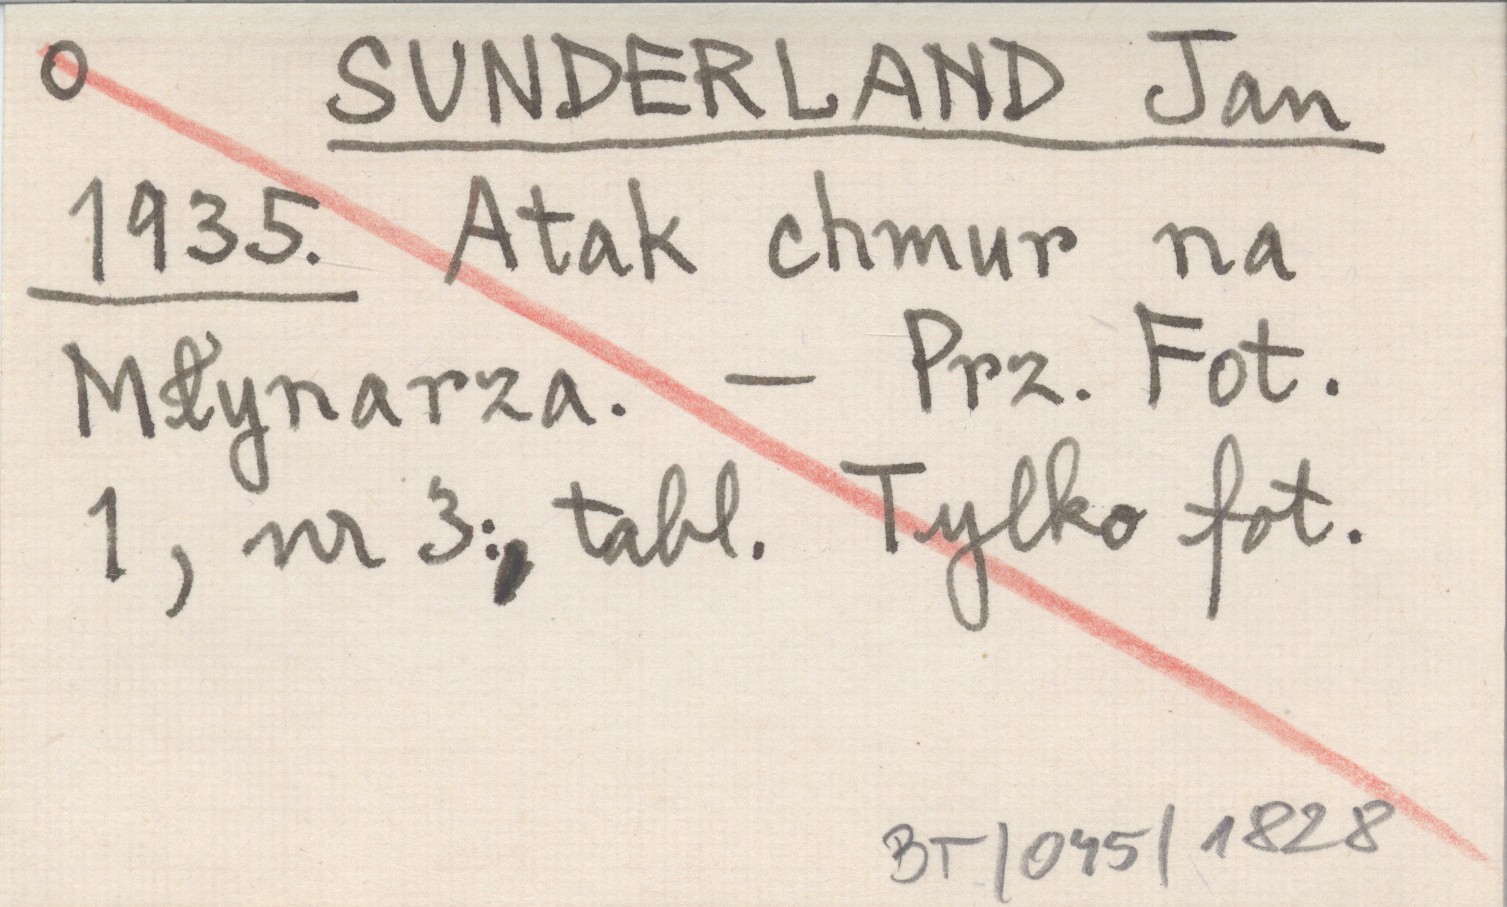 O SUNDERLAND Jan
1935. Atak chmur na
Młynarza. — Prz. Fot.
1, nr 3:, tabl. Tylko fot.
BT/045/1828